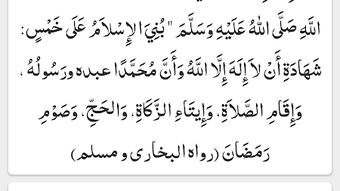 اللَّهِ صَلَّى اللهُ عَلَيْهِ وَسَلَّمَ " بُنِيَ الإِسْلاَمُ عَلَى خَمْسٍ:
شَهَادَةِ أَنْ لاَ إِلَهَ إِلَّا اللَّهُ وَأَنَّ مُحَمَّدًا عبده ورَسُولُهُ ،
وَإِقَامِ الصَّلاَةِ، وَإِيتَاءِ الزَّكَاةِ، وَالحَجِّ، وَصَوْمِ
رَمَضَانَ (رواه البخارى و مسلم)